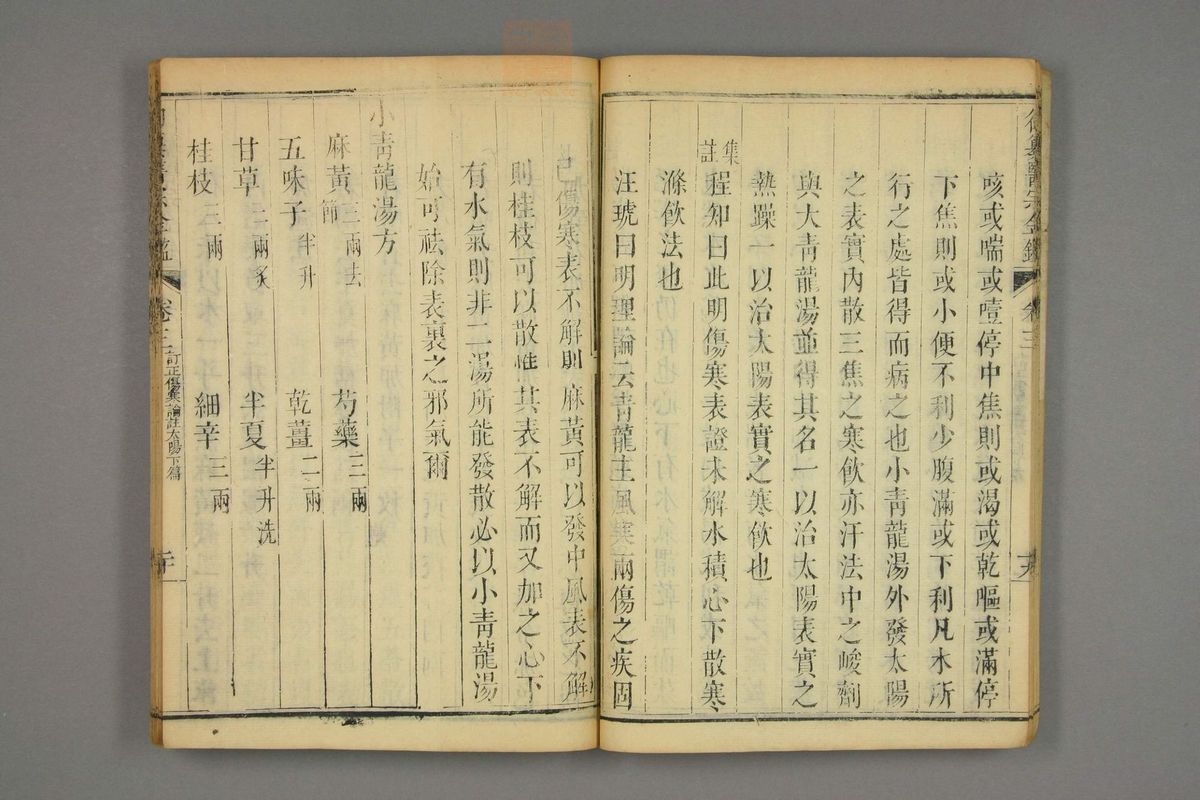 咳或喘或噎停中焦則或渴或乾嘔或滿停
下焦則或小便不利少腹滿或下利凡水所
行之處皆得而病之也小青龍湯外發太陽
之表實內散三焦之寒飲亦汗法中之峻劑
與大青龍湯並得其名一以治太陽表實之
熱躁一以治太陽表實之寒飲也
集註
程知曰此明傷寒表證未解水積心下散寒
滌飲法也
汪琥曰明理論云青龍主風寒兩傷之疾固
已傷寒表不解則麻黃可以發中風表不解
則桂枝可以散惟其表不解而又加之心下
有水氣則非二湯所能發散必以小青龍湯
始可祛除表裏之邪氣爾
小青龍湯方
麻黃 三兩去節 芍藥 三兩
五味子 半升 乾薑 二兩
甘草 二兩炙 半夏 半升洗
桂枝 三兩 細辛 三兩
卷三 訂正傷寒論註太陽下篇